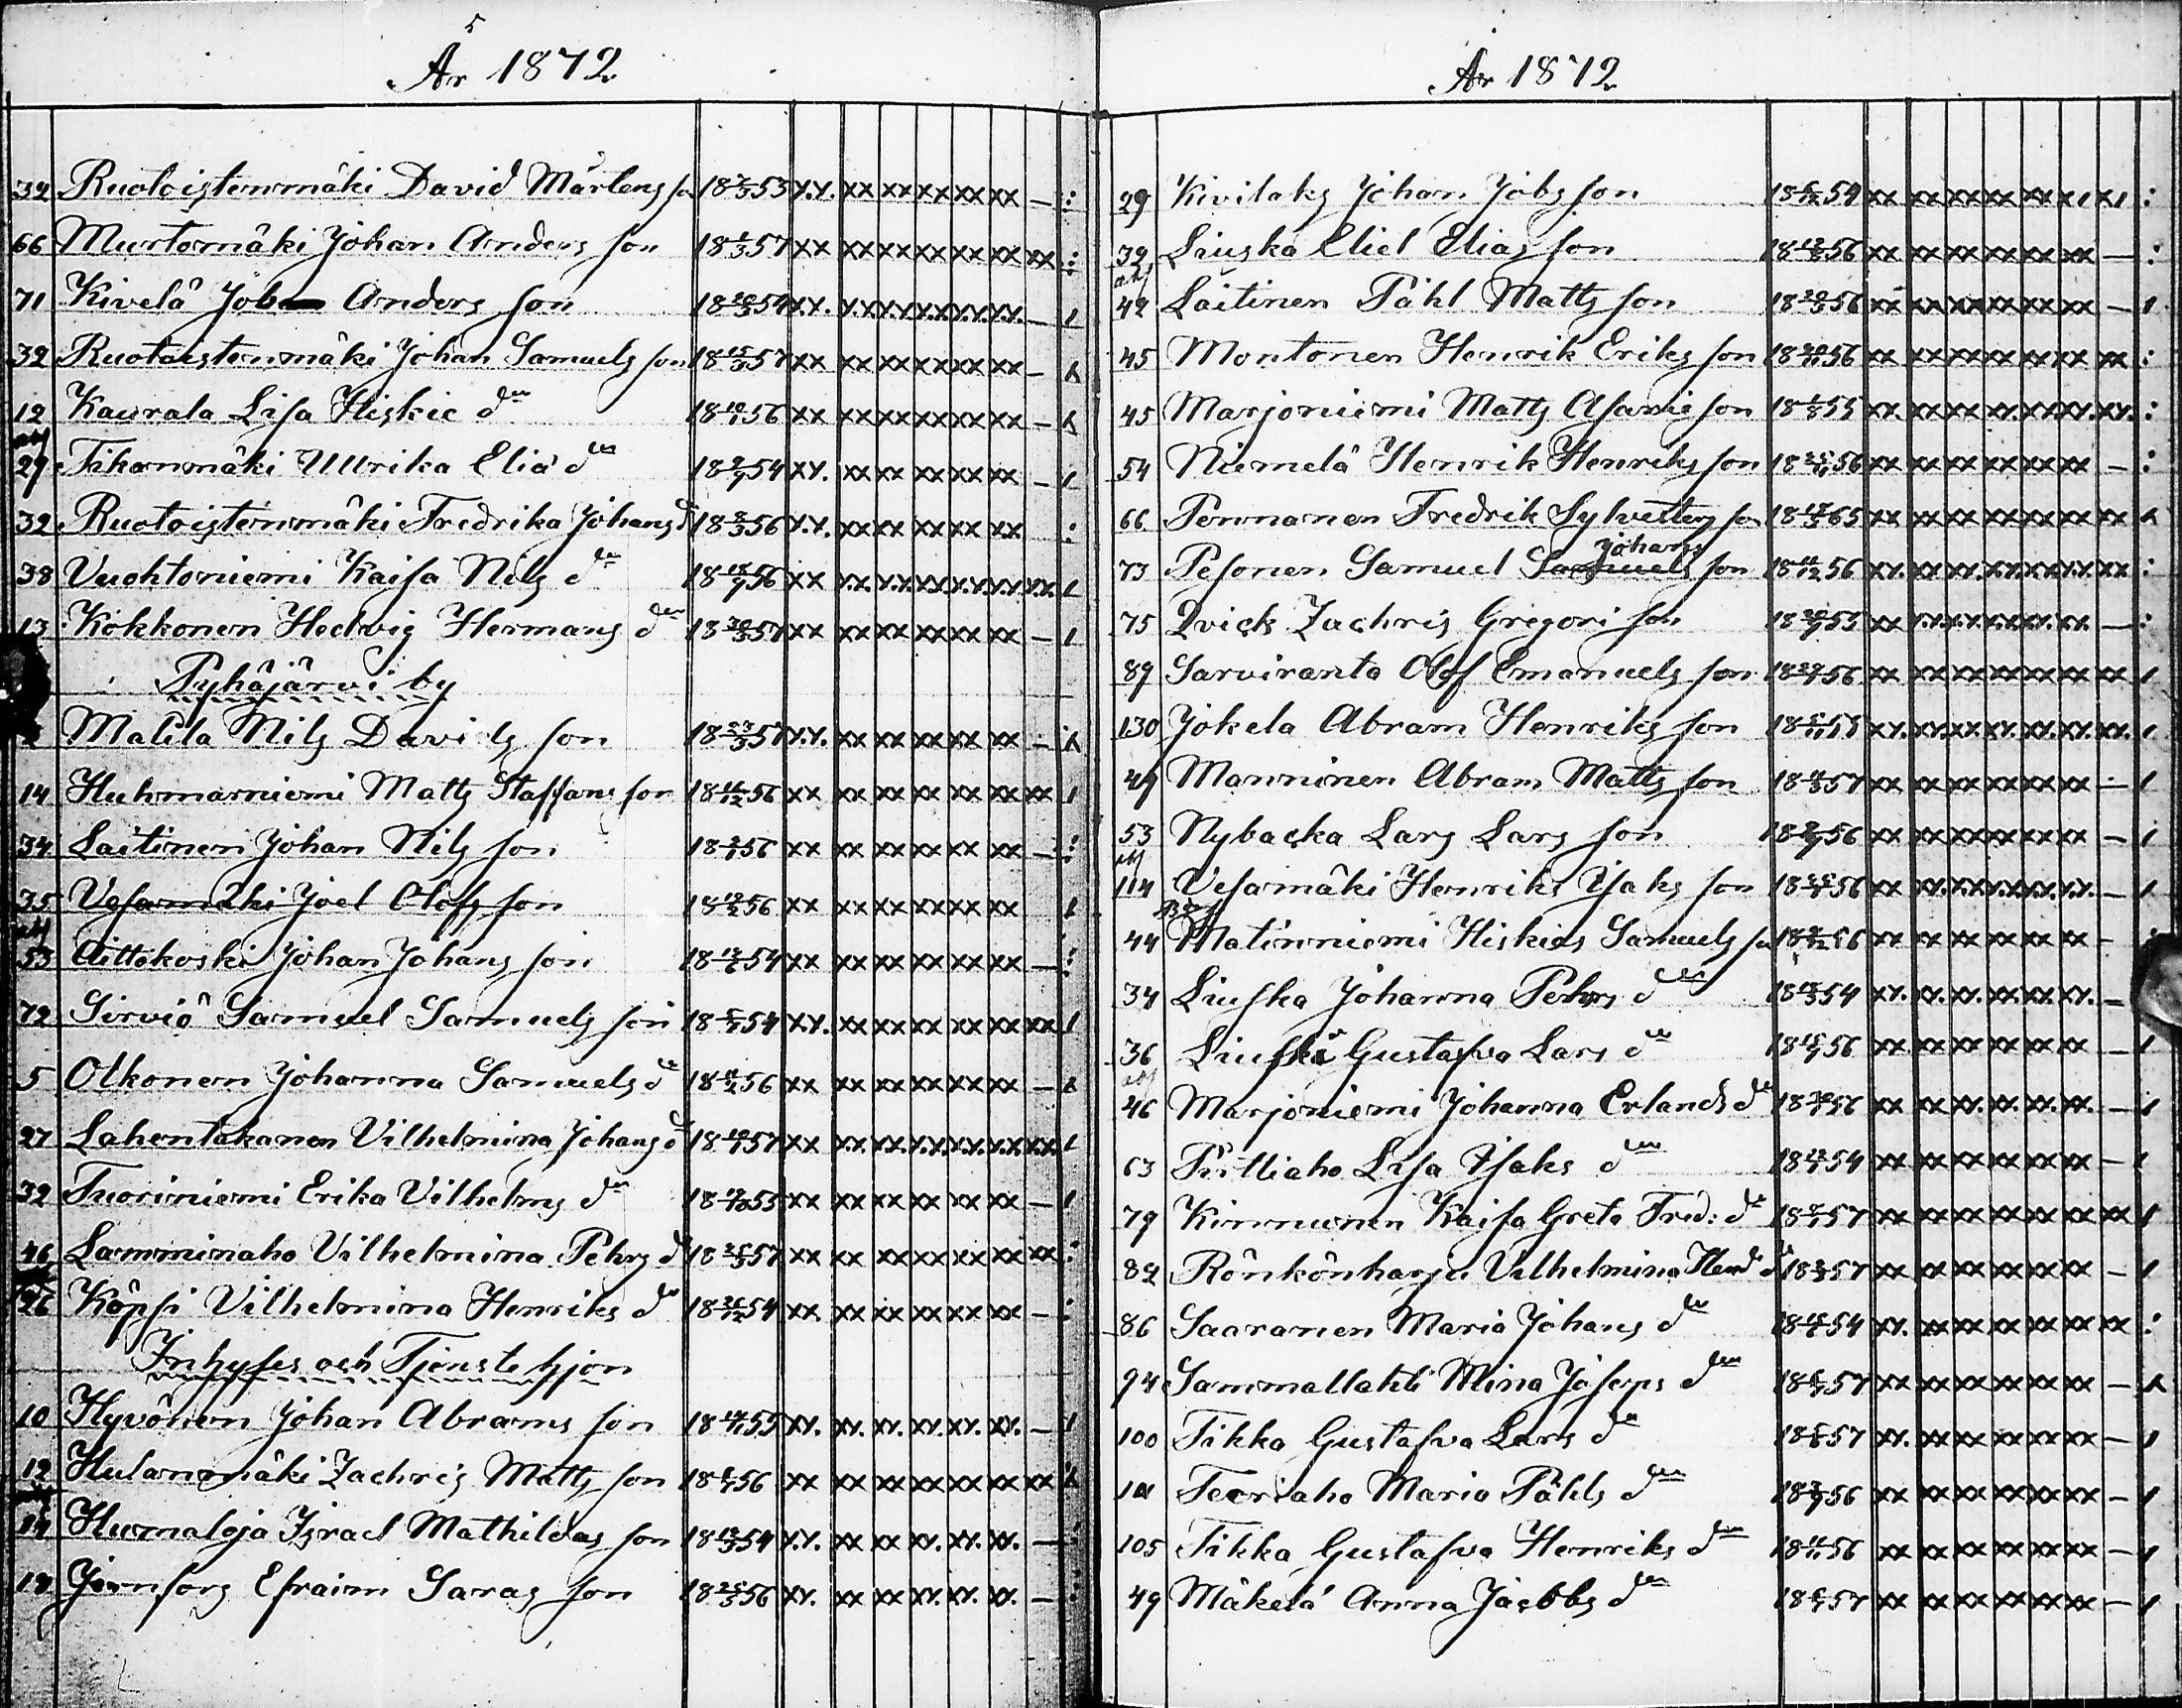 År 1872
32 Ruotoistenmäki David Mårtens son 18 53 xx xx xx xx xx xx — :
66 Murtomäki Johan Anders son 18 1/3 57 xx xx xx xx xx xx xx :
71 Kivelä Job Anders son 18 54 xx xx xx xx xx xx — 1
32 Ruotoistenmäki Johan Samuels son 18 15/3 57 xx xx xx xx xx xx —
12 Kaurala Lisa Hiskie dr 18 56 xx xx xx xx xx xx —
29 Tikanmäki Ullrika Elia dr 18 54 xx xx xx xx xx xx — 1
32 Ruotoistenmäki Fredrika Johans d 18 56 xx xx xx xx xx xx :
38 Vuohtoniemi Kaisa Nils dr 18 56 xx xx xx xx xx xx xx 1
13 Kokkonen Hedvig Hermans dr 18 57 xx xx xx xx xx xx — 1
Pyhäjärvi by
Matila Nils Davids son 18 57 xx xx xx xx xx xx —
14 Huhmarniemi Matts Staffans son 18 56 xx xx xx xx xx xx xx 1
34 Laitinen Johan Nils son 18 56 xx xx xx xx xx xx — :
35 Vesamäki Joel Olofs son 18 56 xx xx xx xx xx xx 1
53 Aittokoski Johan Johans son 18 54 xx xx xx xx xx xx — :
72 Sirviö Samuel Samuels son 18 54 xx xx xx xx xx xx xx 1
5 Olkonen Johanna Samuels dr 18 56 xx xx xx xx xx xx —
27 Lahentakanen Vilhelmina Johans d 18 57 xx xx xx xx xx xx xx 1
32 Tuoriniemi Erika Vilhelms dr 18 55 xx xx xx xx xx xx — 1
46 Lamminaho Vilhelmina Pehrs d 18 57 xx xx xx xx xx xx xx :
26 Köpsi Vilhelmina Henriks dr 18 54 xx xx xx xx xx xx — :
Inhyses och Tjenste hjon
10 Hyvönen Johan Abrams son 18 55 xx xx xx xx xx xx — 1
12 Hulanmäki Zachris Matts son 18 56 xx xx xx xx xx xx xx
14 Humaloja Israel Mathildas son 18 54 xx xx xx xx xx xx — :
18 Jernfors Efraim Saras son 18 25/3 56 xx xx xx xx xx xx — :
År 1872
29 Kivilaks Johan Jobs son 18 54 xx xx xx xx xx x1 x1 :
32 Liuska Eliel Elias son 18 56 xx xx xx xx xx xx — :
42 Laitinen Påhl Matts son 18 56 xx xx xx xx xx xx — 1
45 Montonen Henrik Eriks son 18 56 xx xx xx xx xx xx xx :
45 Marjoniemi Matts Asarie son 18 55 xx xx xx xx xx xx xx :
54 Niemelä Henrik Henriks son 18 56 xx xx xx xx xx xx — :
66 Pennanen Fredrik Sylvesters son 18 65 xx xx xx xx xx xx xx
Johans
73 Pesonen Samuel Samuels son 18 56 xx xx xx xx xx xx xx :
75 Qvick Zachris Gregori son 18 55 xx xx xx xx xx xx — :
89 Sarviranta Olof Emanuels son 18 56 xx xx xx xx xx xx xx 1
130 Jokela Abram Henriks son 18 55 xx xx xx xx xx xx xx 1
49 Manninen Abram Matts son 18 57 xx xx xx xx xx xx — 1
53 Nybacka Lars Lars son 18 56 xx xx xx xx xx xx — 1
114 Vesamäki Henriks Isaks son 18 56 xx xx xx xx xx xx — 1
44 Matinniemi Hiskias Samuels son 18 56 xx xx xx xx xx xx —
34 Liuska Johanna Pehrs dr 18 54 xx xx xx xx xx xx —
36 Liuska Gustafva Lars dr 18 56 xx xx xx xx xx xx — 1
46 Marjoniemi Johanna Erlands dr 18 56 xx xx xx xx xx xx — 1
63 Putliaho Lisa Isaks dr 18 54 xx xx xx xx xx xx — 1
79 Kinnunen Kaisa Greta Fred: dr 18 57 xx xx xx xx xx xx xx 1
82 Rönkönharju Vilhelmina Henr d 18 57 xx xx xx xx xx xx — 1
86 Saaranen Maria Johans dr 18 54 xx xx xx xx xx xx xx :
94 Sammallahti Mina Josefs dr 18 57 xx xx xx xx xx xx —
100 Tikka Gustafva Lars dr 18 57 xx xx xx xx xx xx — 1
Teeriaho Maria Påhls dr 18 56 xx xx xx xx xx xx — 1
105 Tikka Gustafva Henriks dr 18 56 xx xx xx xx xx xx — 1
49 Mäkelä Anna Jacobs dr 18 57 xx xx xx xx xx xx — 1